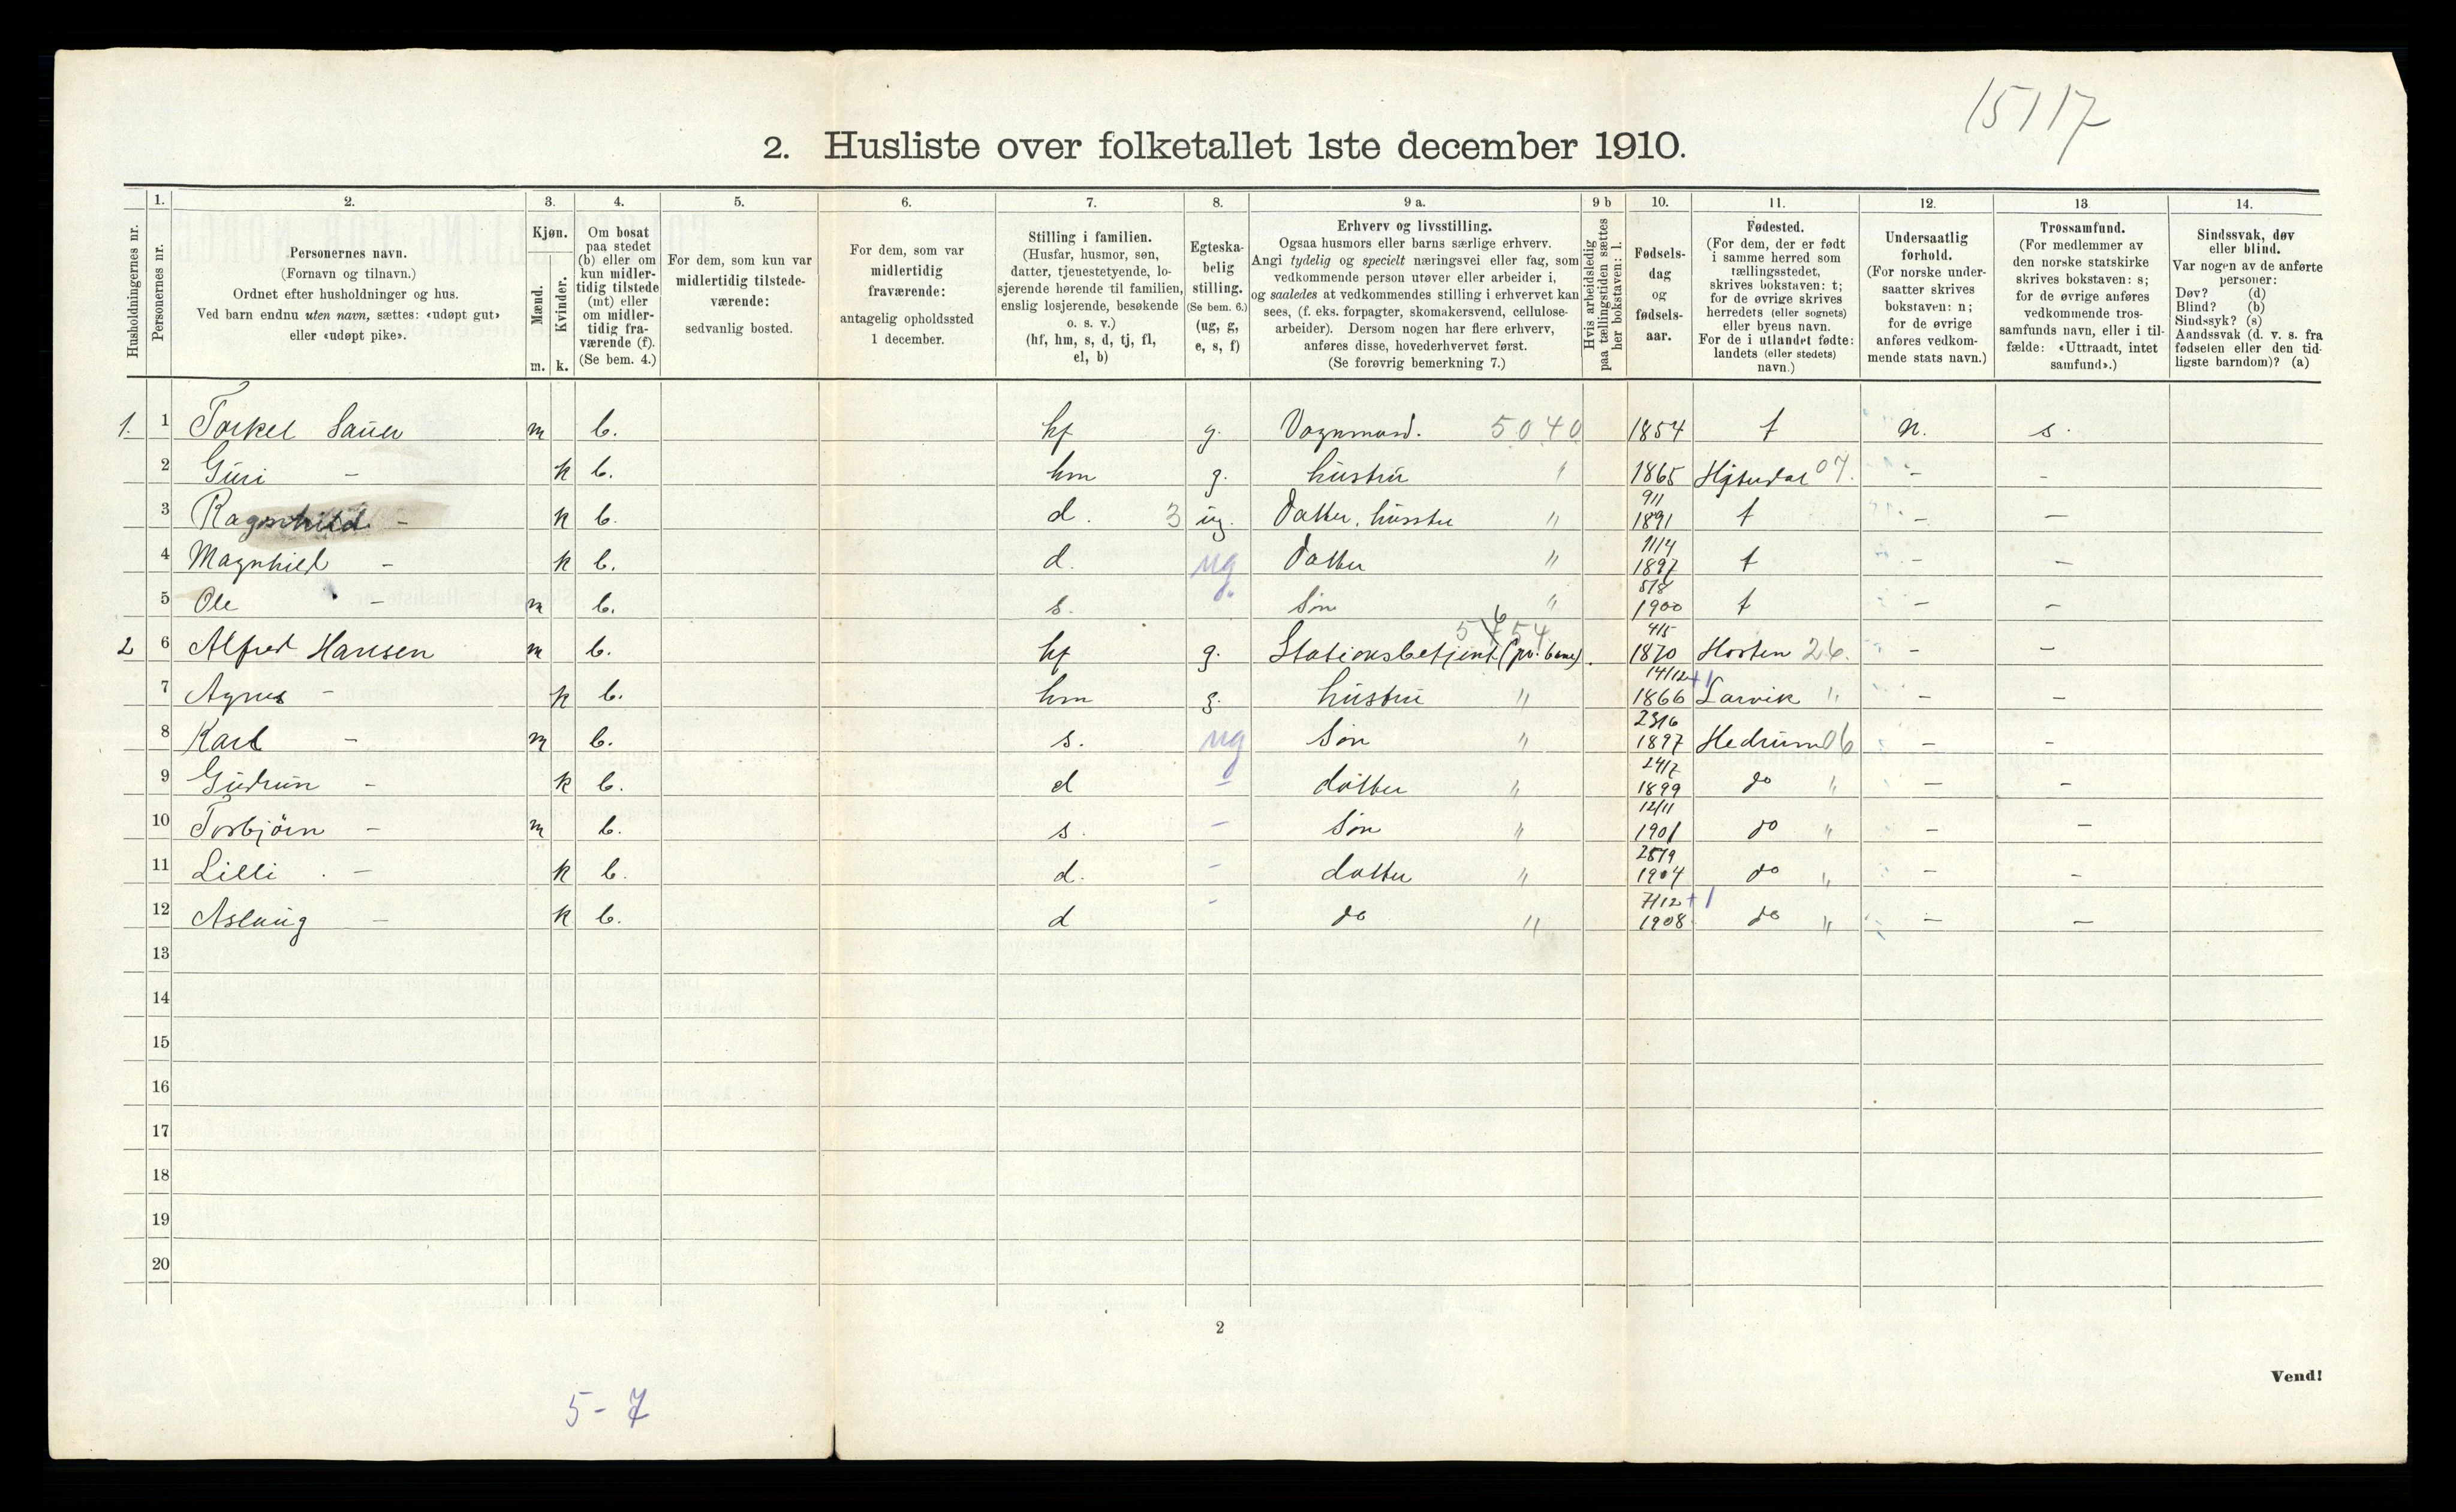 15117
2. Husliste over folketallet 1ste december 1910.
Husholdningernes nr.
1.
Personernes nr.
2.
Personernes navn.
(Fornavn og tilnavn.)
Ordnet efter husholdninger og hus.
Ved barn endnu uten navn, sættes: «udøpt gut»
eller «udøpt pike».
3.
Kjøn.
Mænd.
Kvinder.
m. k.
4.
Om bosat
paa stedet
(b) eller om
kun midler-
tidig tilstede
(mt) eller
om midler-
tidig fra-
værende (f).
(Se bem. 4.)
5.
For dem, som kun var
midlertidig tilstede-
værende:
sedvanlig bosted.
6.
For dem, som var
midlertidig
fraværende:
antagelig opholdssted
1 december.
7.
Stilling i familien.
(Husfar, husmor, søn,
datter, tjenestetyende, lo-
sjerende hørende til familien,
enslig losjerende, besøkende
o. s. v.)
(hf, hm, s, d, tj, fl,
el, b)
8.
Egteska-
belig
stilling.
(Se bem. 6.)
(ug, g,
e, s, f)
9 a.
Erhverv og livsstilling.
Ogsaa husmors eller barns særlige erhverv.
Angi tydelig og specielt næringsvei eller fag, som
vedkommende person utøver eller arbeider i,
og saaledes at vedkommendes stilling i erhvervet kan
sees, (f. eks. forpagter, skomakersvend, cellulose-
arbeider). Dersom nogen har flere erhverv,
anføres disse, hovederhvervet først.
(Se forøvrig bemerkning 7.)
9 b
Hvis arbeidsledig
paa tællingstiden sættes
her bokstaven: l.
10.
Fødsels-
dag
og
fødsels-
aar.
11.
Fødested.
(For dem, der er født
i samme herred som
tællingsstedet,
skrives bokstaven: t;
for de øvrige skrives
herredets (eller sognets)
eller byens navn.
For de i utlandet fødte:
landets (eller stedets)
navn.)
12.
Undersaatlig
forhold.
(For norske under-
saatter skrives
bokstaven: n;
for de øvrige
anføres vedkom-
mende stats navn.)
13
Trossamfund.
(For medlemmer av
den norske statskirke
skrives bokstaven: s;
for de øvrige anføres
vedkommende tros-
samfunds navn, eller i til-
fælde: «Uttraadt, intet
samfund».)
14.
Sindssvak, døv
eller blind.
Var nogen av de anførte
personer:
Døv? (d)
Blind? (b)
Sindssyk? (s)
Aandssvak (d. v. s. fra
fødselen eller den tid-
ligste barndom)? (a)
1. 1 Torkel Sauer m b. hf g. Vognmand. 5040 1854 t n. s.
2 Guri - k b. hm g. hustru " 1865 Hitterdal 07. - -
3 Ragnhild - k b. d. 3 ug. Datter, husstel " 9/11 1891 t - -
4 Magnhild - k b. d. ug Datter " 11/4 1897 t - -
5 Ole - m b. s. Søn " 5/8 1900 t - -
2 6 Alfred Hansen m b. hf g. Stationsbetjent (pr. bane). 4/5 1870 Horten 26. - -
7 Agnes - k b. hm g. hustru " 14/12 +1 1866 Larvik " - -
8 Karl - m b. s. ug Søn " 23/6 1897 Hedrum 06 - -
9 Gudrun - k b. d - datter " 24/7 1899 do " - -
10 Torbjörn - m b. s. - Søn " 12/11 1901 do " - -
11 Lilli - k b. d. - datter " 25/9 1904 do " - -
12 Aslaug - k b. d - do " 7/12 +1 1908 do " - -
13
14
15
16
17
18
19
20
2
Vend!
5-7